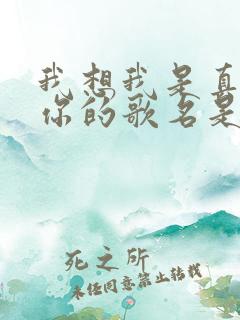 我想我是真
你的歌名是
死之所
未经同意禁止转载